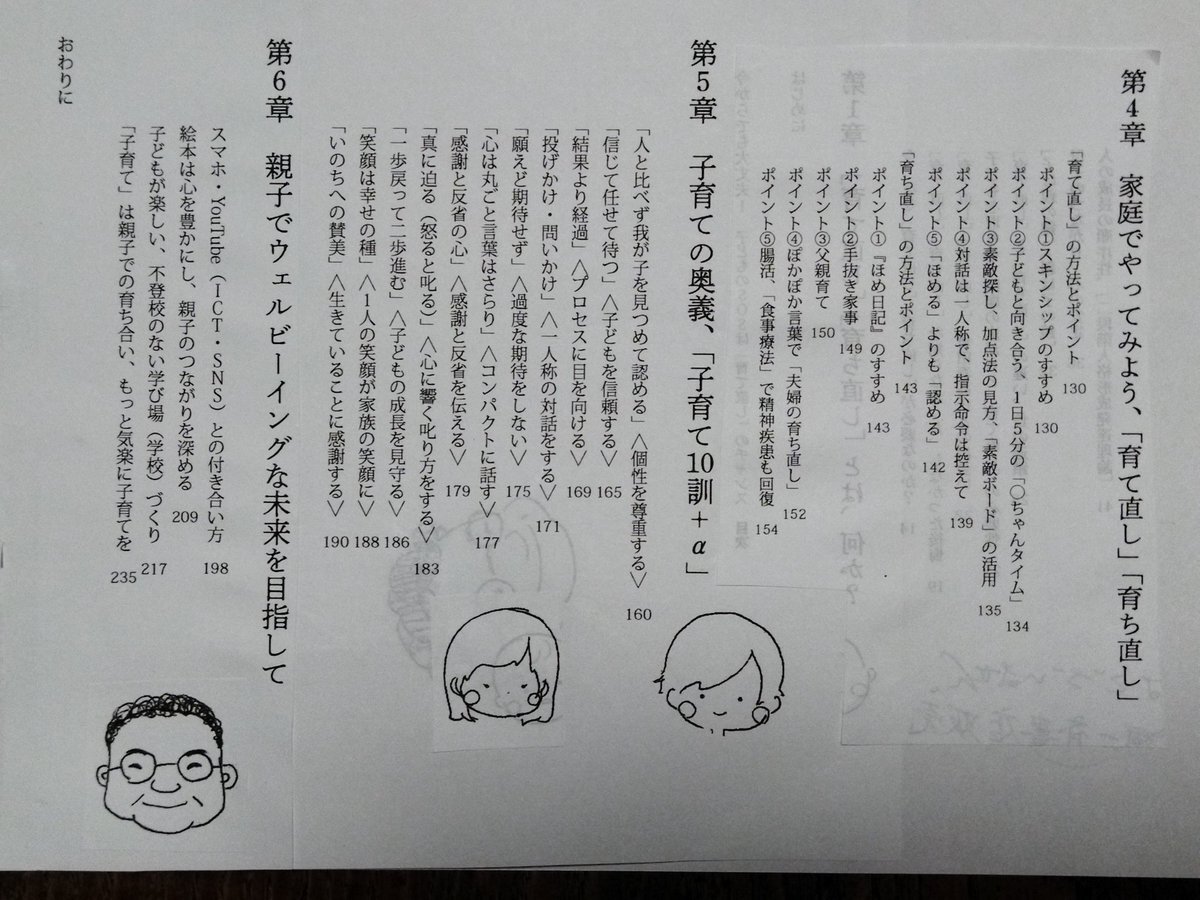 第4章　家庭でやってみよう、「育て直し」「育ち直し」
「育て直し」の方法とポイント　130
ポイント①スキンシップのすすめ　130
ポイント②子どもと向き合う、1日5分の「〇ちゃんタイム」　134
ポイント③素敵探し、加点法の見方、「素敵ボード」の活用　135
ポイント④対話は一人称で、指示命令は控えて　139
ポイント⑤「ほめる」よりも「認める」　142
「育ち直し」の方法とポイント　143
ポイント①『ほめ日記』のすすめ　143
ポイント②手抜き家事　149
ポイント③父親育て　150
ポイント④ぽかぽか言葉で「夫婦の育ち直し」　152
ポイント⑤腸活、「食事療法」で精神疾患も回復　154
第5章　子育ての奥義、「子育て10訓＋α」
「人と比べず我が子を見つめて認める」〈個性を尊重する〉　160
「信じて任せて待つ」〈子どもを信頼する〉　165
「結果より経過」〈プロセスに目を向ける〉　169
「投げかけ・問いかけ」〈一人称の対話をする〉　171
「願えど期待せず」〈過度な期待をしない〉　175
「心は丸ごと言葉はさらり」〈コンパクトに話す〉　177
「感謝と反省の心」〈感謝と反省を伝える〉　179
「真に迫る（怒ると叱る）」〈心に響く叱り方をする〉　183
「一歩戻って二歩進む」〈子どもの成長を見守る〉　186
「笑顔は幸せの種」〈1人の笑顔が家族の笑顔に〉　188
「いのちへの賛美」〈生きていることに感謝する〉　190
第6章　親子でウェルビーイングな未来を目指して
スマホ・YouTube（ICT・SNS）との付き合い方　198
絵本は心を豊かにし、親子のつながりを深める　209
子どもが楽しい、不登校のない学び場（学校）づくり　217
「子育て」は親子での育ち合い、もっと気楽に子育てを　235
おわりに